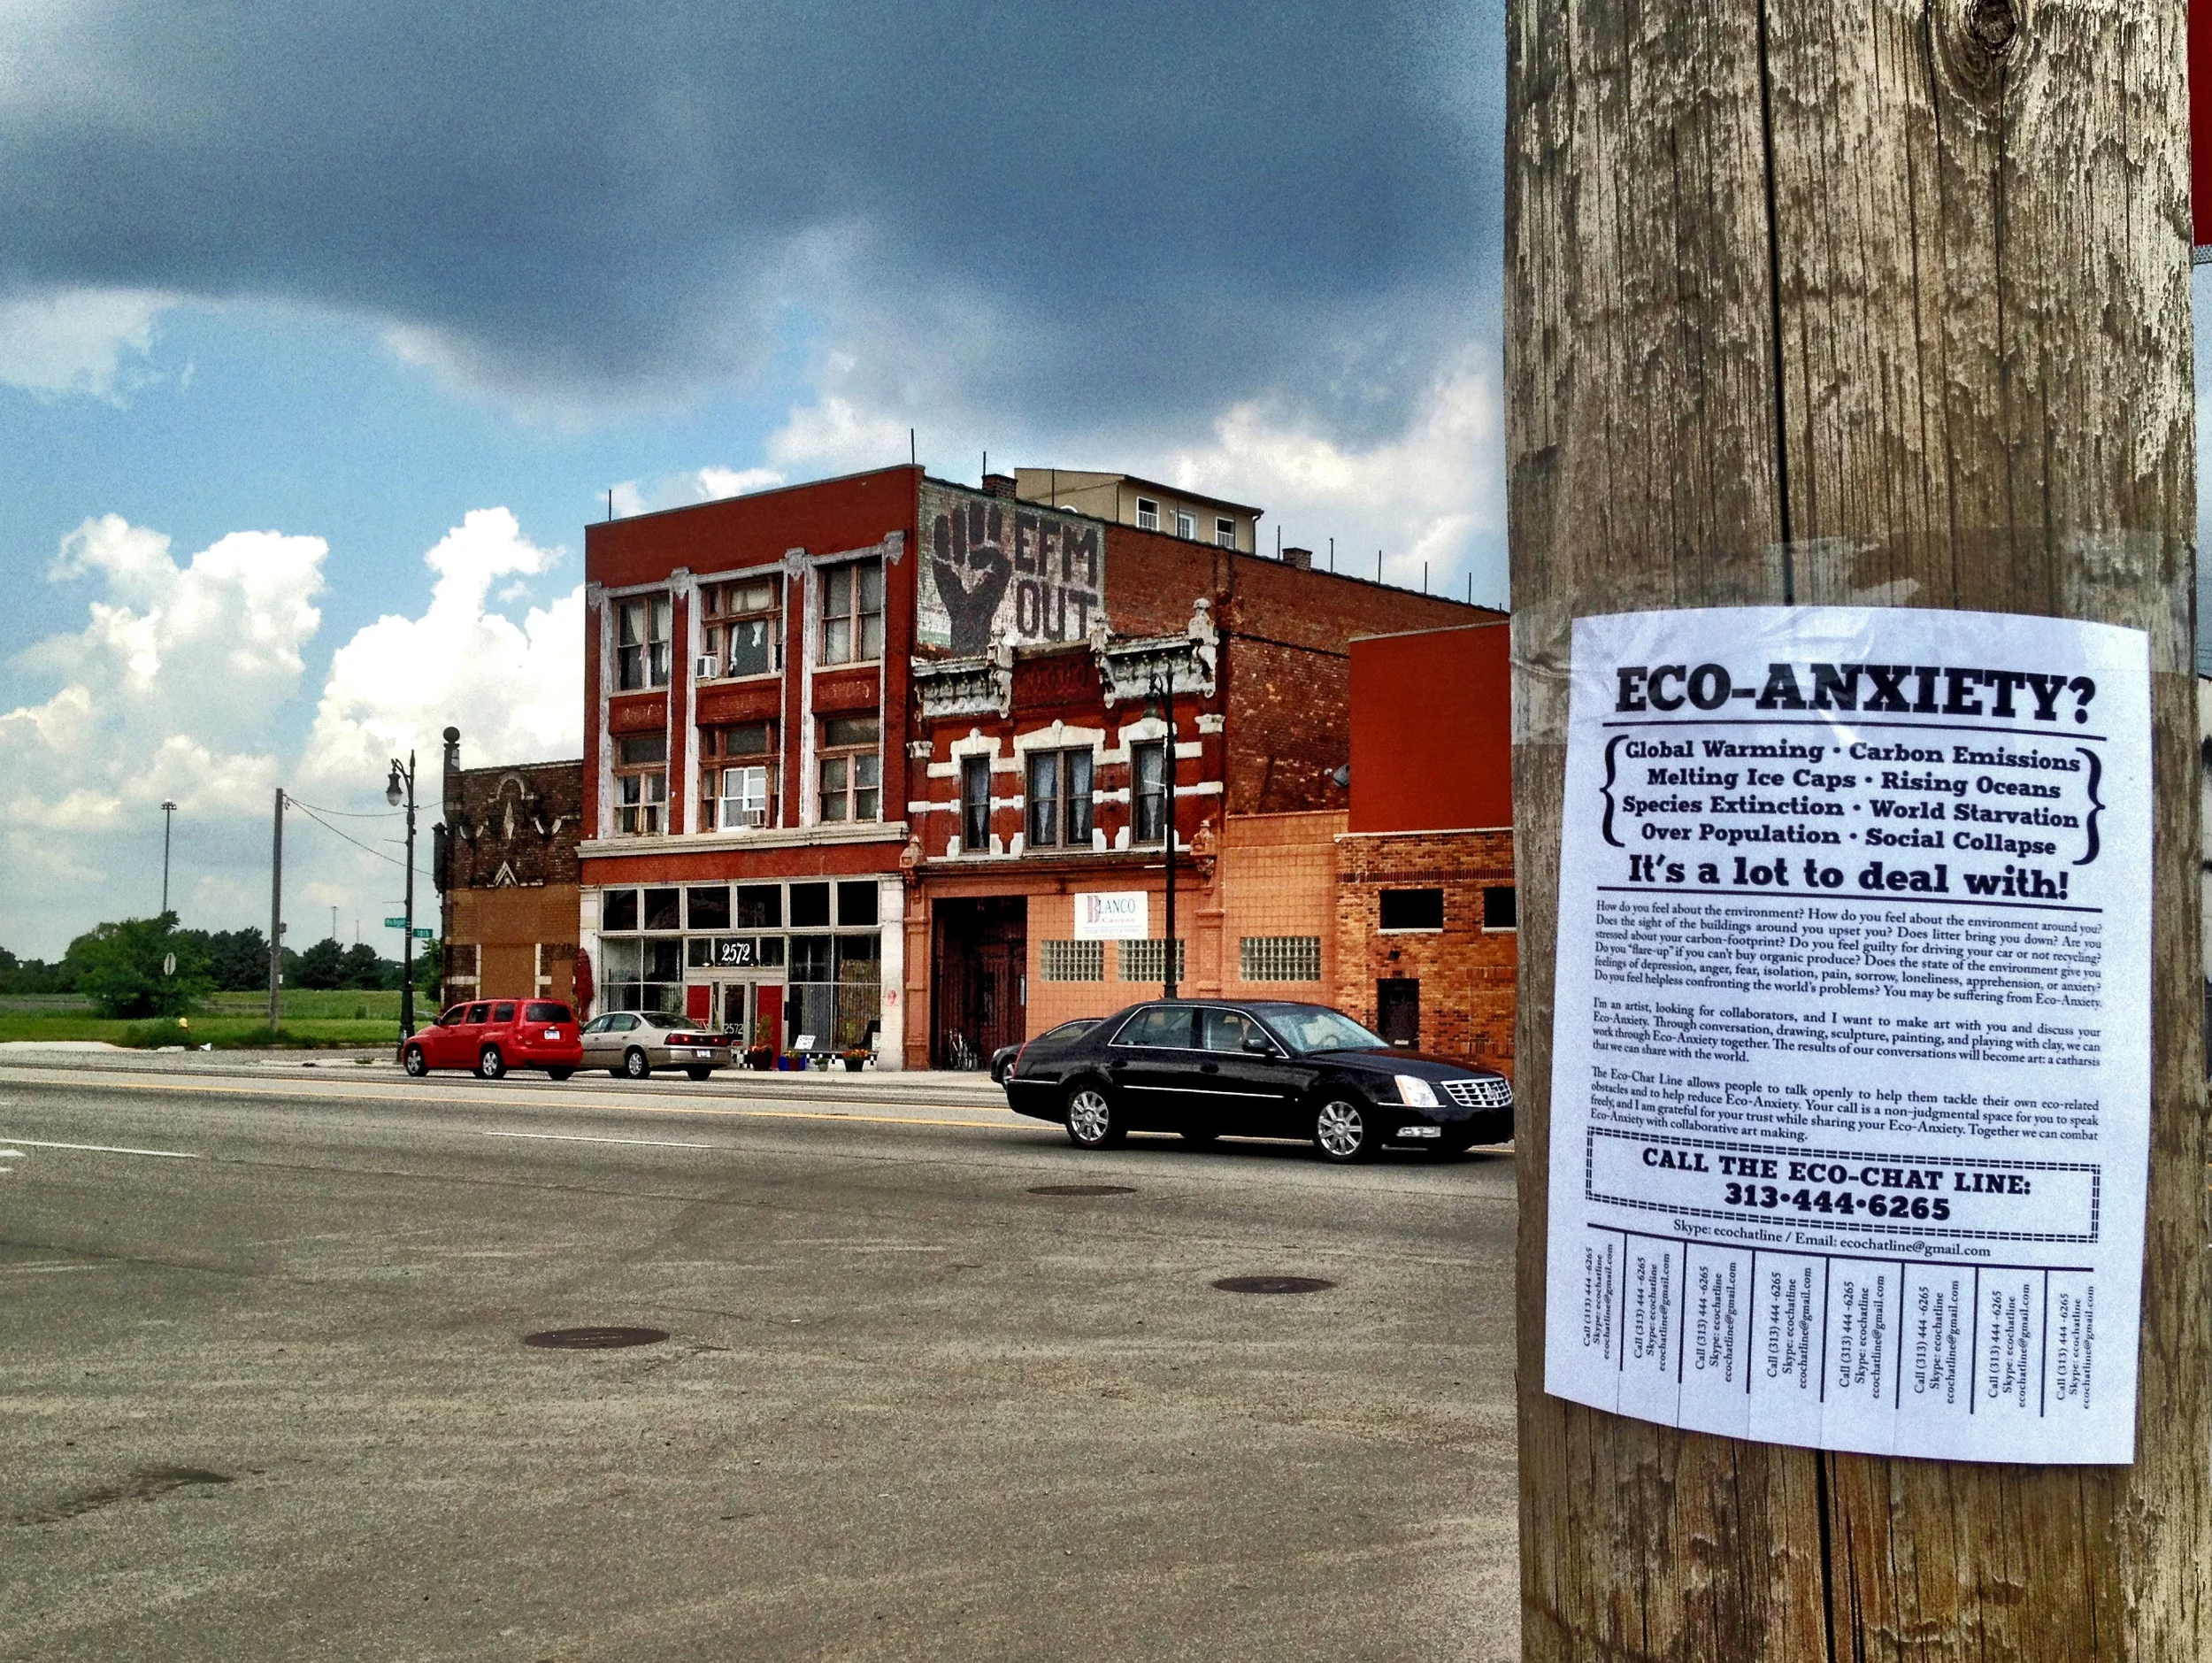 EFM
OUT
2572
BLANCO
2572
ECO-ANXIETY?
Global Warming • Carbon Emissions
Melting Ice Caps • Rising Oceans
Species Extinction • World Starvation
Over Population • Social Collapse
It's a lot to deal with!
How do you feel about the environment? How do you feel about the environment around you?
Does the sight of the buildings around you upset you? Does litter bring you down? Are you
stressed about your carbon-footprint? Do you feel guilty for driving your car or not recycling?
Do you "flare-up" if you can't buy organic produce? Does the state of the environment give you
feelings of depression, anger, fear, isolation, pain, sorrow, loneliness, apprehension, or anxiety?
Do you feel helpless confronting the world's problems? You may be suffering from Eco-Anxiety.
I'm an artist, looking for collaborators, and I want to make art with you and discuss your
Eco-Anxiety. Through conversation, drawing, sculpture, painting, and playing with clay, we can
work through Eco-Anxiety together. The results of our conversations will become art: a catharsis
that we can share with the world.
The Eco-Chat Line allows people to talk openly to help them tackle their own eco-related
obstacles and to help reduce Eco-Anxiety. Your call is a non-judgmental space for you to speak
freely, and I am grateful for your trust while sharing your Eco-Anxiety. Together we can combat
Eco-Anxiety with collaborative art making.
CALL THE ECO-CHAT LINE:
313•444•6265
Skype: ecochatline / Email: ecochatline@gmail.com
Call (313) 444 -6265
Skype: ecochatline
ecochatline@gmail.com
Call (313) 444 -6265
Skype: ecochatline
ecochatline@gmail.com
Call (313) 444 -6265
Skype: ecochatline
ecochatline@gmail.com
Call (313) 444 -6265
Skype: ecochatline
ecochatline@gmail.com
Call (313) 444 -6265
Skype: ecochatline
ecochatline@gmail.com
Call (313) 444 -6265
Skype: ecochatline
ecochatline@gmail.com
Call (313) 444 -6265
Skype: ecochatline
ecochatline@gmail.com
Call (313) 444 -6265
Skype: ecochatline
ecochatline@gmail.com